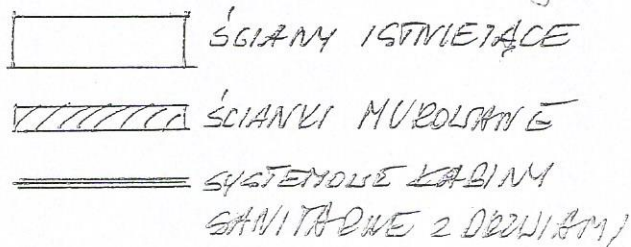 ŚCIANY ISTNIEJĄCE
ŚCIANKI MUROWANE
SYSTEMOWE KABINY
SANITARNE Z DRZWIAMI